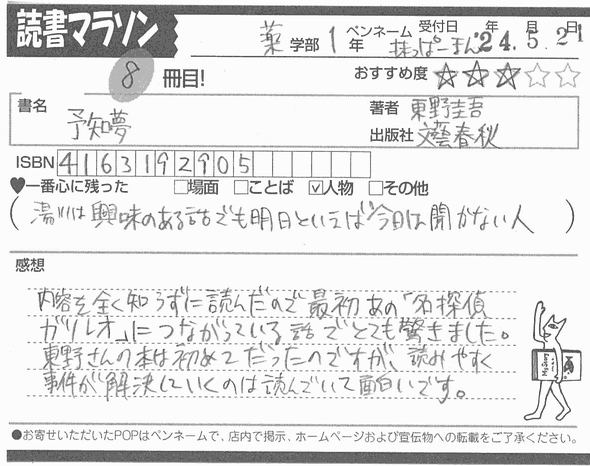 読書マラソン
薬学部1年 ペンネーム 抹っぱーまん 受付日 '24年5月21日
8冊目!
おすすめ度 ★★★☆☆
書名 予知夢
著者 東野圭吾
出版社 文藝春秋
ISBN 4163192905
♥一番心に残った □場面 □ことば ☑人物 □その他
(湯川は興味のある話でも明日といえば今日は聞かない人)
感想
内容を全く知らずに読んだので最初あの「名探偵
ガリレオ」につながっている話でとても驚きました。
東野さんの本は初めてだったのですが、読みやすく
事件が解決していくのは読んでいて面白いです。
●お寄せいただいたPOPはペンネームで、店内で掲示、ホームページおよび宣伝物への転載をご了承ください。